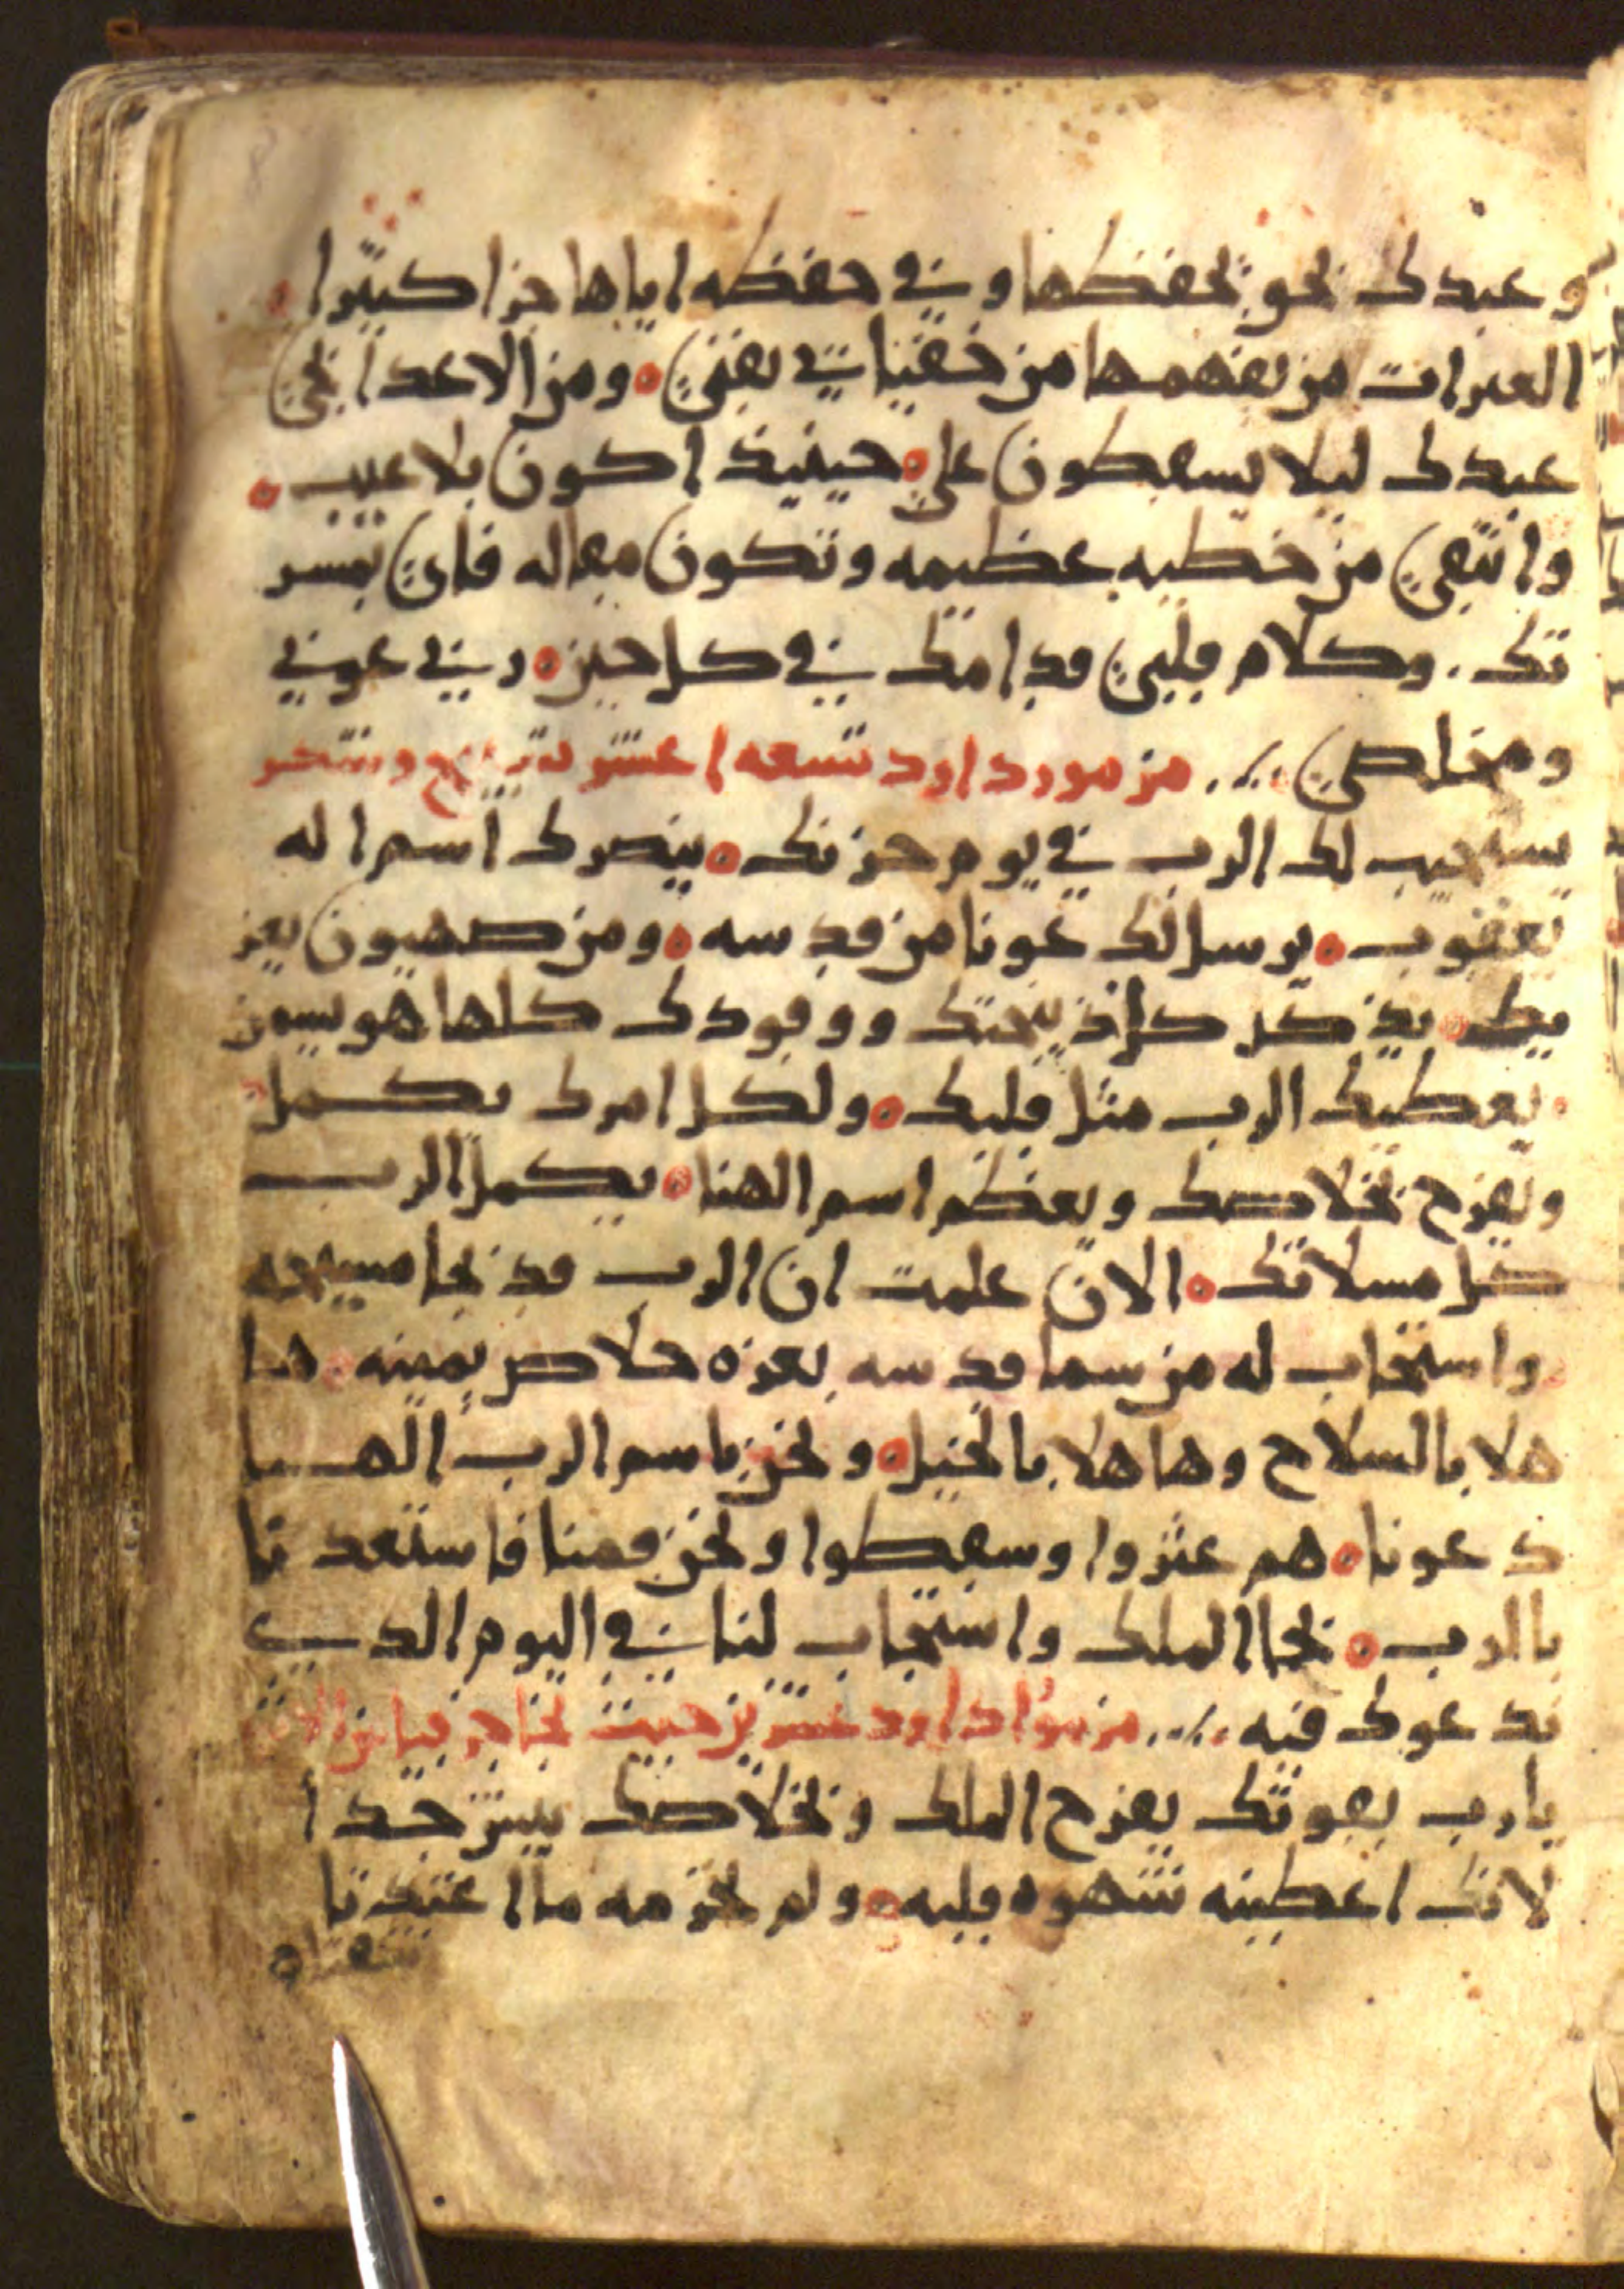 وعبدك نحو يحفظها وفي حفظه اياها جزا كثيرا
العبرات من يفهمها من خفياتي نقني ومن الاعدا نجي
عبدك ليلا يسقطون علي حينيذ اكون بلا عيب
وانتقي من خطيه عظيمه وتكون مقاله فاي بمسر
تك وكلام قلبي قدامك في كل حين رب عوني
ومخلصي مزمور داود تسعه اعشر
يستجيب لك الرب في يوم حزنك ينصرك اسم اله
يعقوب يرسل لك عونا من قدسه ومن صهيون يعز
يك يذكر كل ذبيحتك ووقودك كلها هو يسمن
يعطيك الرب مثل قلبك ولكل امرك يكمل
ونفرح بخلاصك وبعظم اسم الهنا يكمل الرب
كل مسلاتك الان علمت ان الرب قد نجا مسيحه
واستجاب له من سما قدسه بعزه خلاص يمينه ها
هلا بالسلاح وهاهلا بالخيل ونحن باسم الرب الهنا
دعونا هم عثروا وسقطوا ونحن قمنا فاستعدنا
بالرب نجا الملك واستجاب لنا في اليوم الدي
ندعوك فيه مزمور داود عشرين
يارب بقوتك يفرح الملك وبخلاصك يبسر جدا
لانك اعطيته شهوه قلبه ولم تحرمه ما اعتدنا
شفتاه